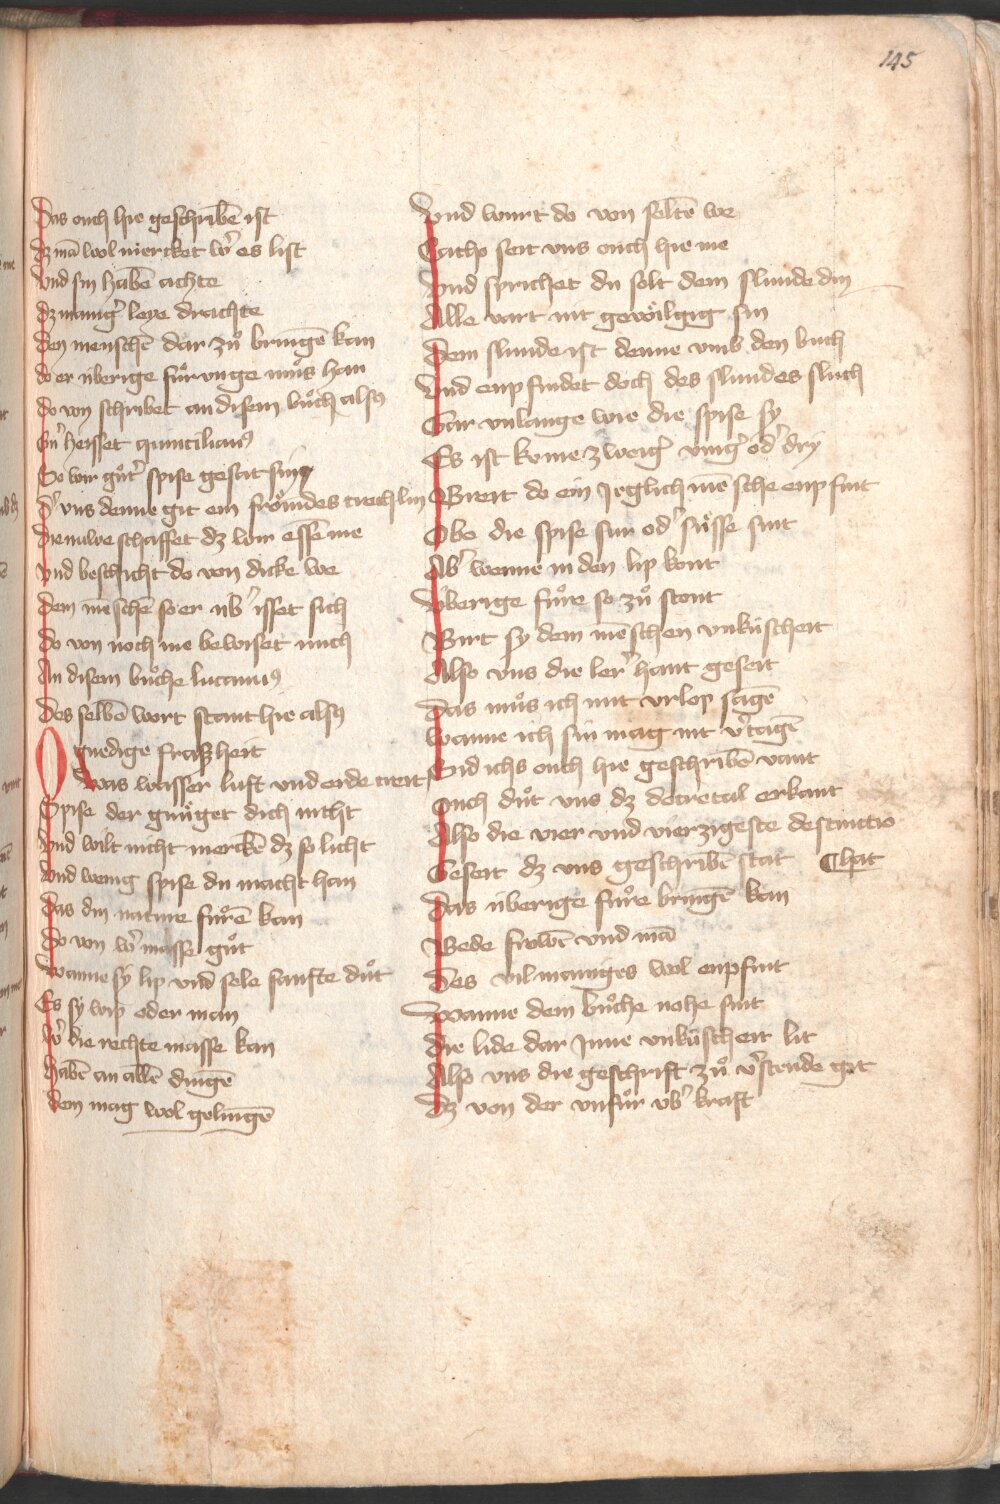 145
Das ouch hie geschribē ist
dz mā wol mercket wˀ es list
Vnd sin habē achte
dz mangˀ leye drachte
den menschē dar zuͦ bringē kan
do er überige fuͦrunge muͦs han
do von schribet an disem buͦch also
Eínˀ heisset quintilianꝰ
So wir guͦtˀ spise gesat sin
dˀ vns denne git ein froͤmdes trechtlin
die nuwe schaffet dz wir essē me
vnd beschicht do von dicke we
dem mēschē so er übˀ isset sich
do von noch me bewiset mich
An disem buͦche lucanuꝰ
Des selbē wort stant hie alsꝰ
O gnedige frasheit
was wasser luft vnd erde treit
Spise der gnuͤget dich nicht
Vnd wilt nicht merckē dz so licht
Vnd wenig spise du macht han
Das din nature fuͦrē kan
do von wˀ masse guͦt
wanne sy lip vnd sele sanfte duͦt
Es sy wip oder man
wˀ die rechte masse kan
habē an allē dingē
dem mag wol gelingē
Vnd wurt do von seltē we
Catho seit vns ouch hie me
Vnd sprichet du solt dem slunde din
Alle vart nit gewoͤlgig sin
Dem slunde ist denne vmb den buch
Vnd enpfindet doch des slundes sluch
Gar vnlange wie die spise sy
Es ist kome zweigˀ vingˀ odˀ dry
Breit do ein Jeglich mēsche enpfint
Obe die spise sur odˀ suͤsse sint
Abˀ wenne in den lip kont
vberige fuͦre so zuͦ stont
Birt sy dem mēschen vnkúscheit
Also vns die lerˀ hant geseit
Das muͦs ich mit vrlop sagē
wanne ich sin mag nit vˀtagē
Sid ichs ouch hie geschribē vant
Ouch duͦt vns dz decretal erkant
Also die vier vnd vierzigeste destinctio
Geseit dz vns geschribē stat ¶hat
Das überige fuͦre bringē kan
Bede frowē vnd mā
Des vil maniges wol enpfint
wanne dem buͦche nohe sint
die lide dar Jnne vnkúscheit lit
Also vns die geschrift zuͦ vˀstende git
dz von der vnfuͦr vbˀ kraft